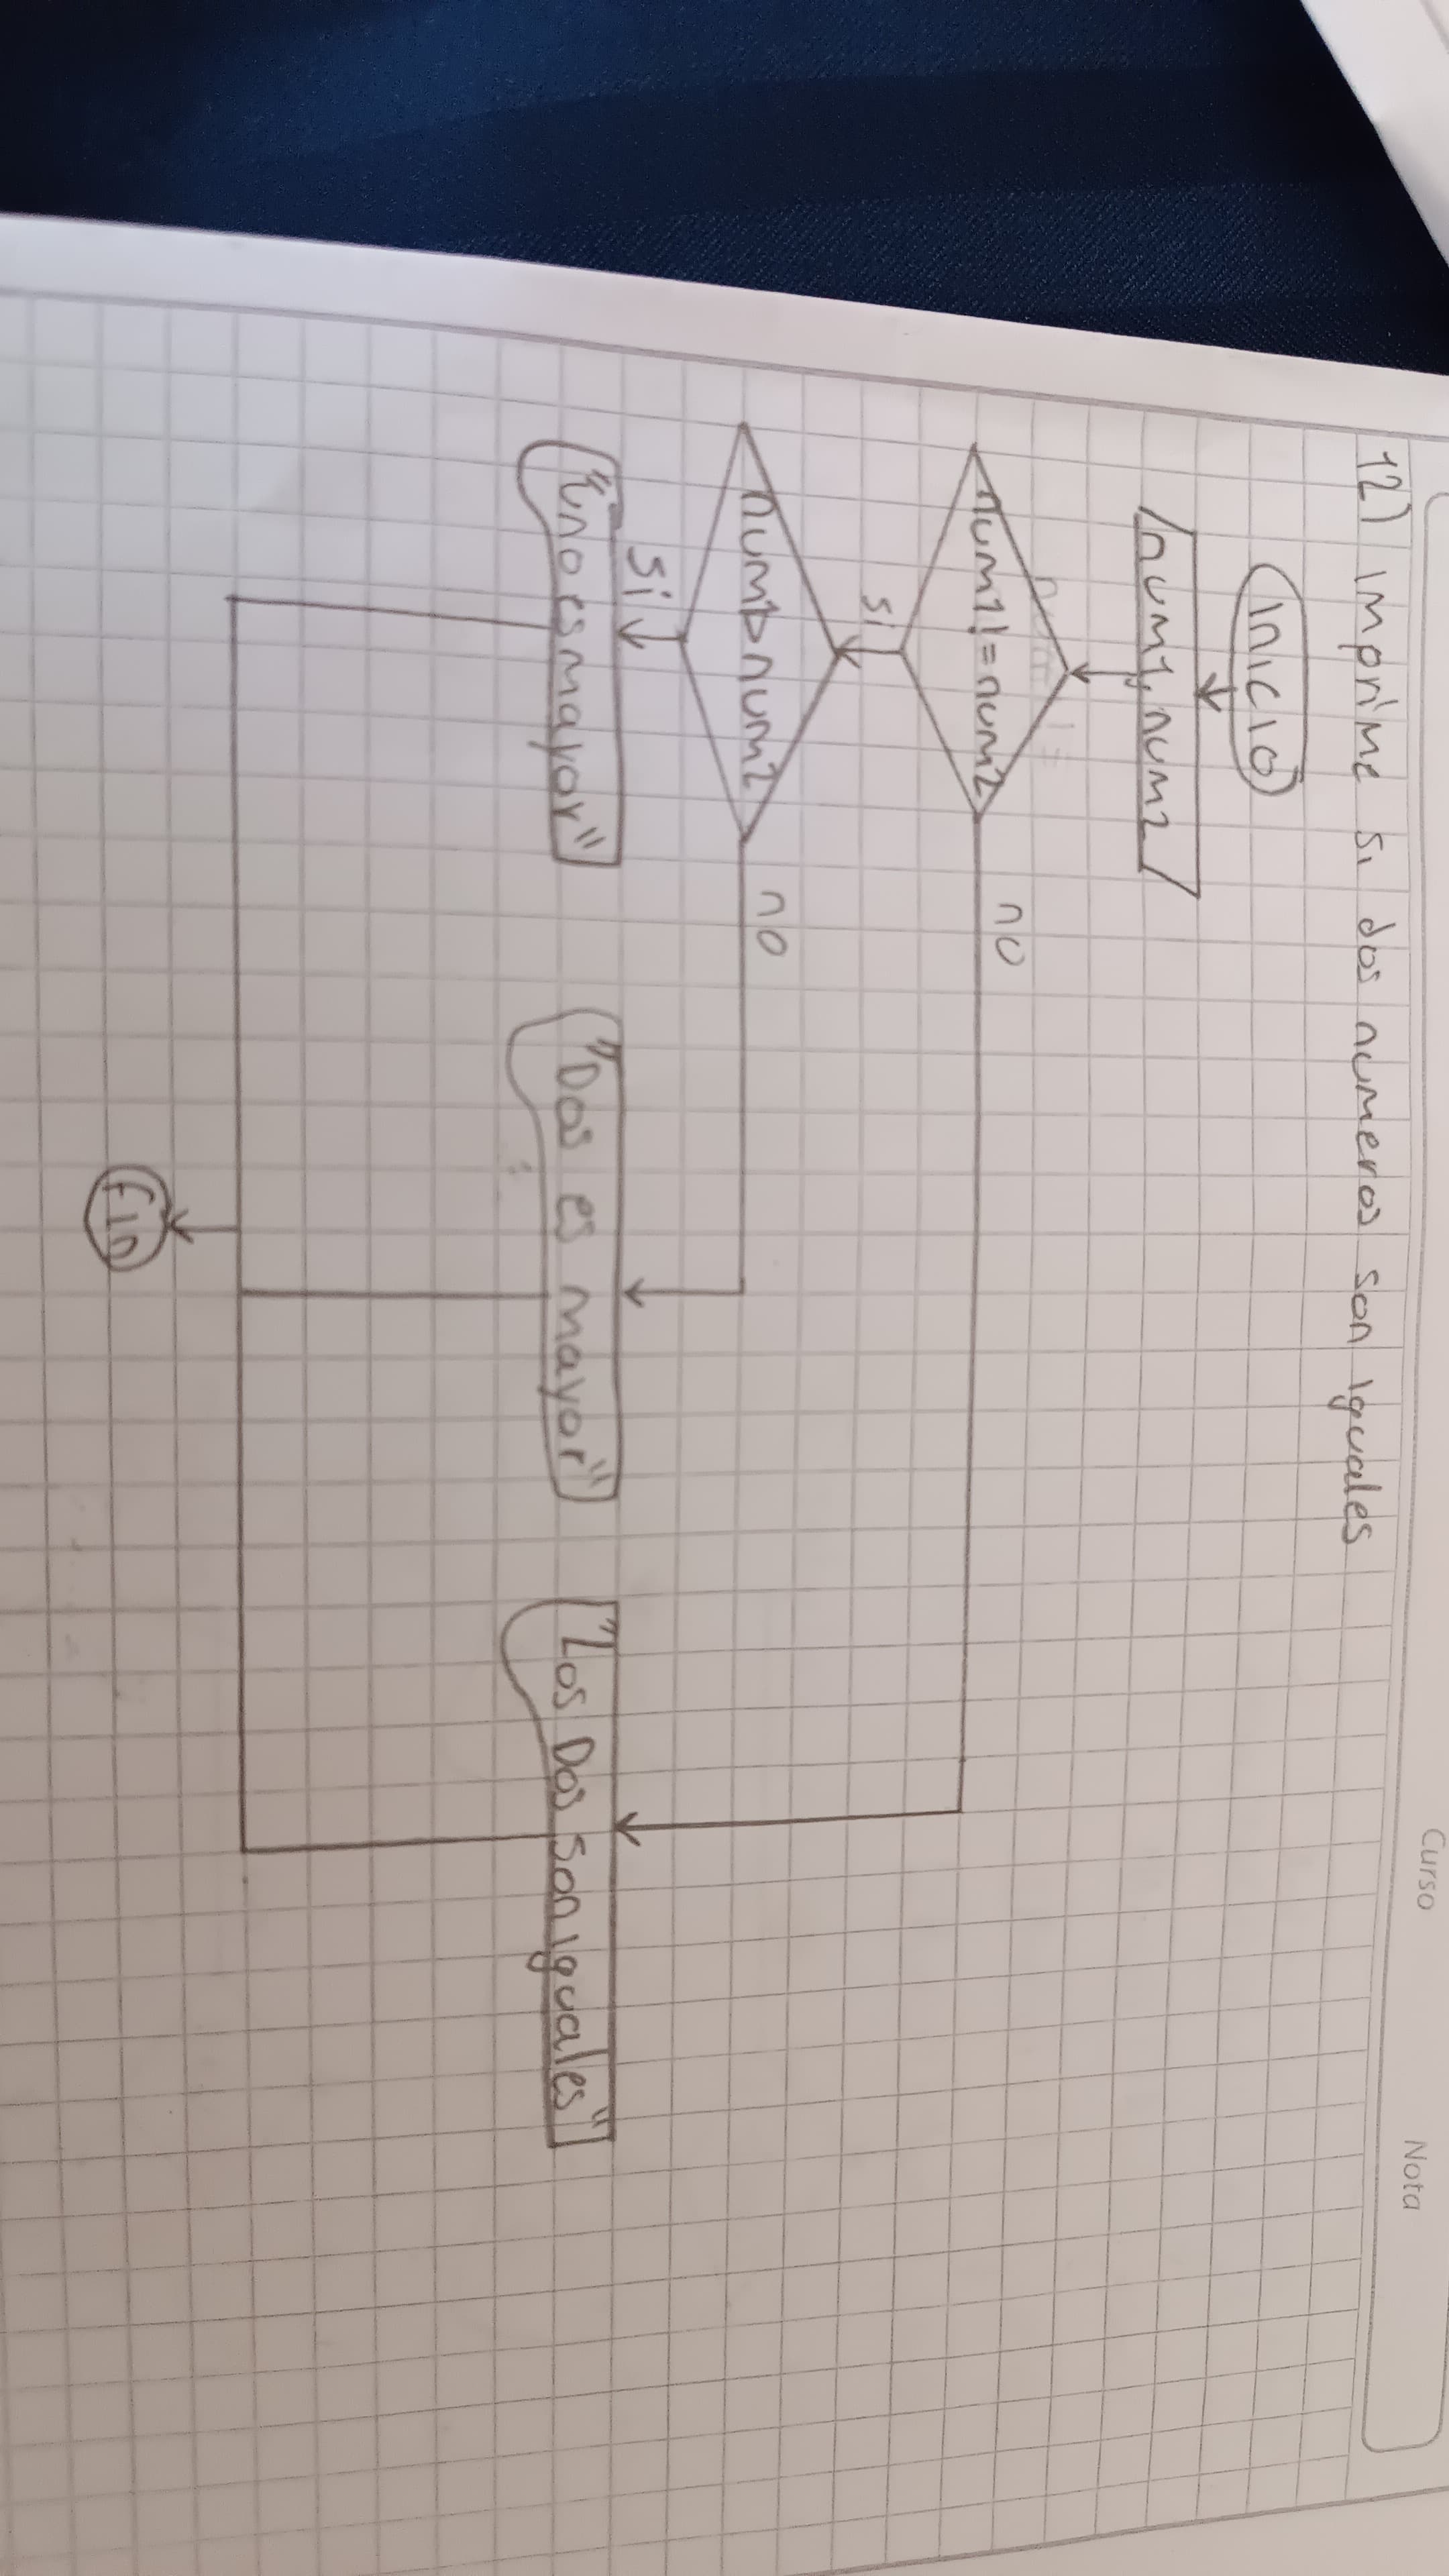 Curso
Nota
12) Imprime si dos numeros son iguales
Inicio
num1, num2
num1!=num2
no
si
num1>num2
no
si
"uno es mayor"
"Dos es mayor"
"Los Dos son iguales"
fin